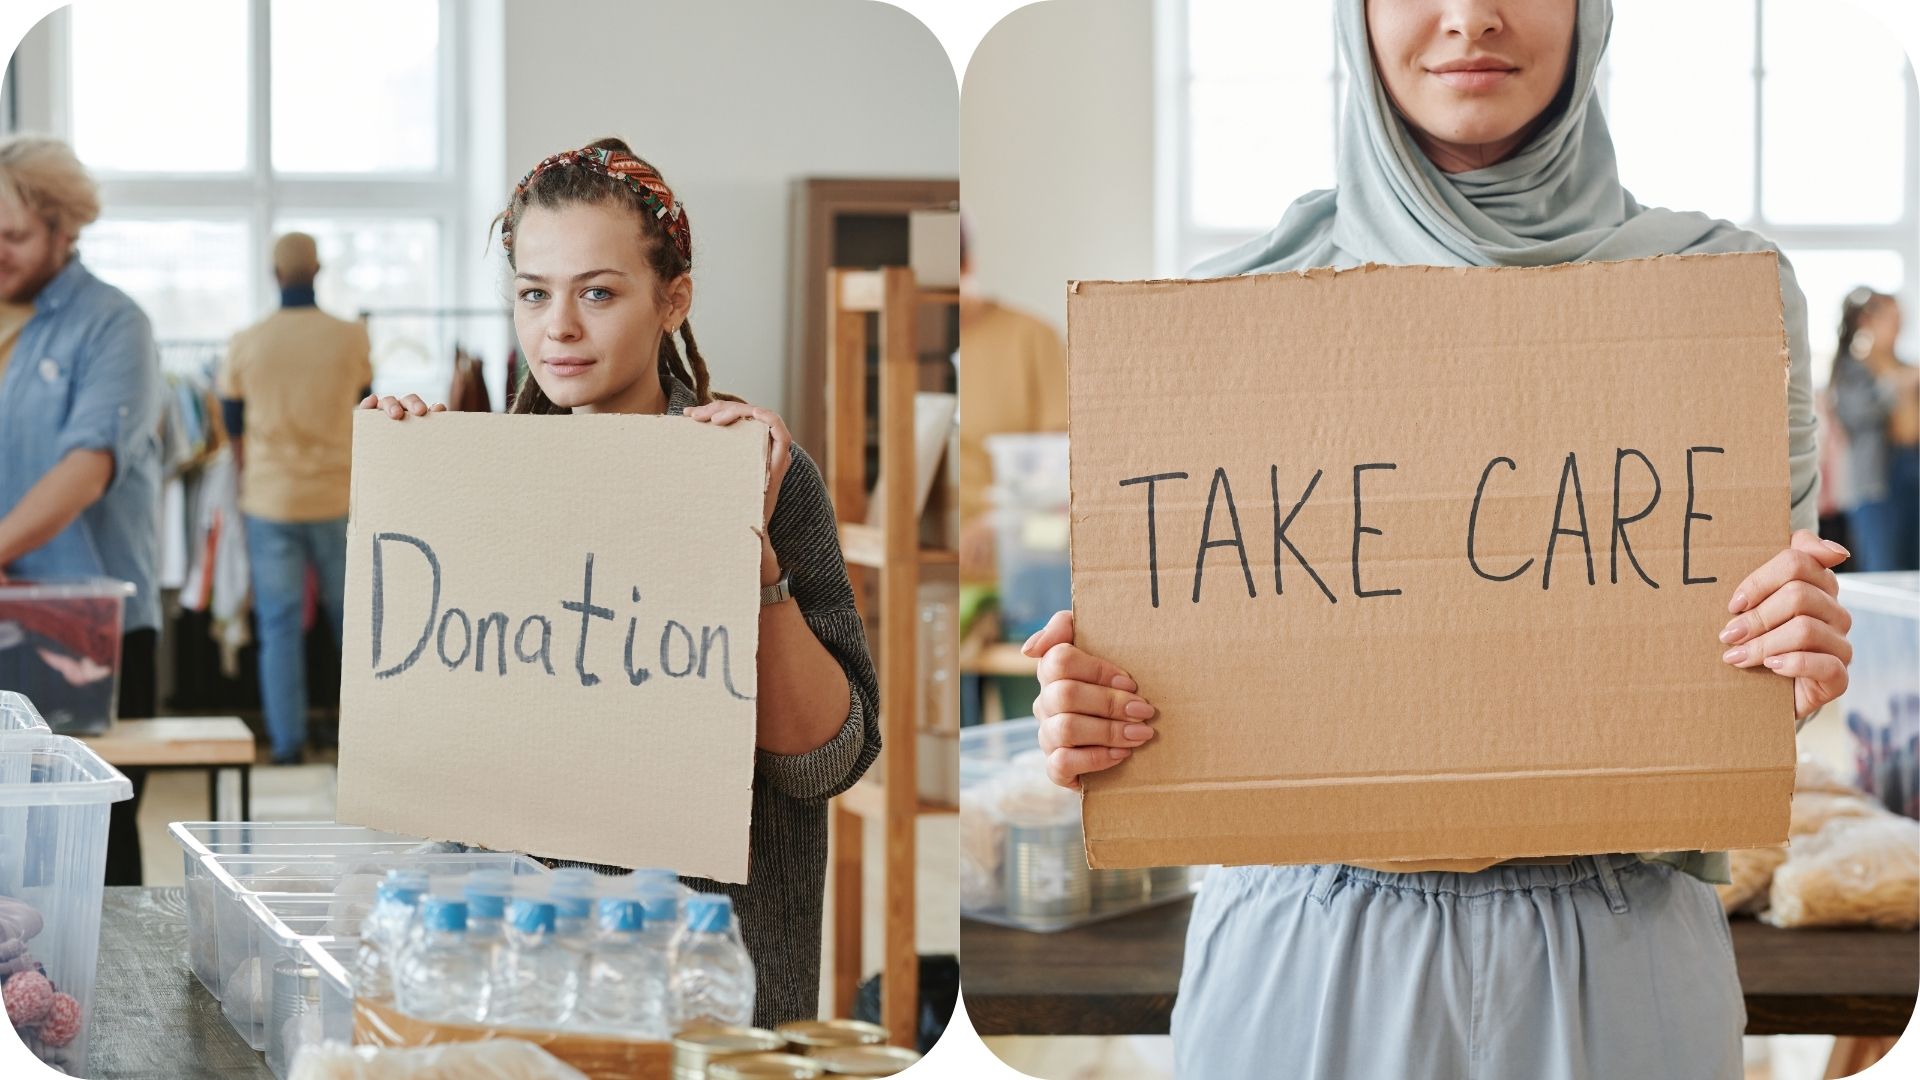 Donation
TAKE CARE